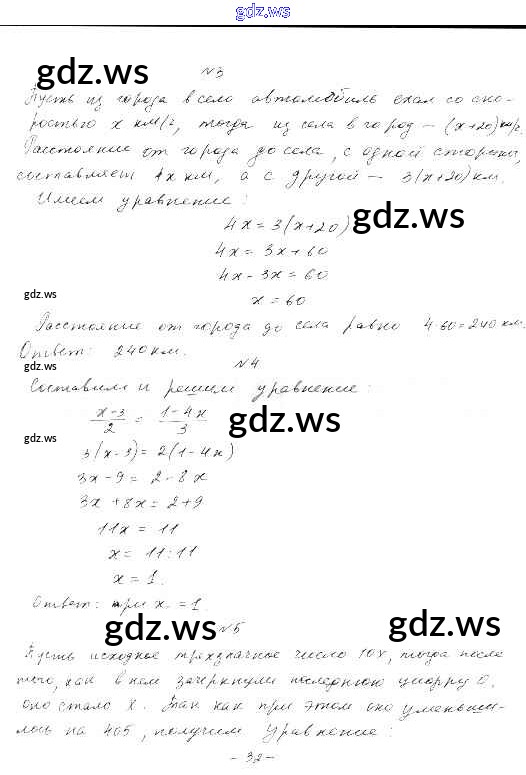 gdz.ws
gdz.ws
№3
Пусть из города в село автомобиль ехал со ско-
ростью x км/г, тогда из села в город – (x+20) км/г.
Расстояние от города до села, с одной стороны,
составляет 4x км, а с другой – 3(x+20) км.
Имеем уравнение:
4x = 3(x+20)
gdz.ws
4x = 3x+60
4x-3x = 60
gdz.ws
x = 60
Расстояние от города до села равно 4·60=240 км.
Ответ: 240 км.
№4
gdz.ws
Составим и решим уравнение:
x-3/2 = 1-4x/3
gdz.ws
gdz.ws
3(x-3) = 2(1-4x)
3x-9 = 2-8x
3x+8x = 2+9
11x = 11
x = 11:11
x = 1.
Ответ: при x = 1.
gdz.ws
№5
gdz.ws
Пусть исходное трехзначное число 10x, тогда после
того, как в нем зачеркнули последнюю цифру 0,
оно стало x. Так как при этом оно уменьши-
лось на 405, получим уравнение:
- 32 -